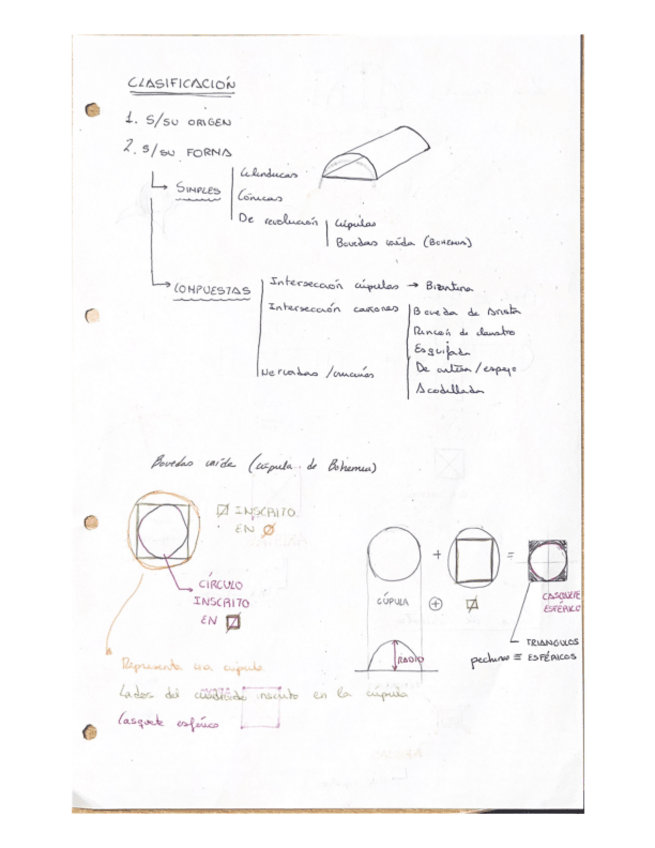 CLASIFICACIÓN
1. S/SU ORIGEN
2. S/SU FORMA
SIMPLES
Cilíndricas
Cónicas
De revolución
Cúpulas
Bovedas vaída (BOHEMIA)
COMPUESTAS
Intersección cúpulas → Bizantina
Intersección cañones
Boveda de Arista
Rincón de claustro
Esquifada
De artesa / espejo
Acodillada
Nervadas / crucerías
Bovedas vaída (cúpula de Bohemia)
INSCRITO
EN
CÍRCULO
INSCRITO
EN
CÚPULA
RADIO
CASQUETE
ESFÉRICO
TRIANGULOS
pechina ≡ ESFÉRICOS
Representa una cúpula
Lados del cuadrado inscrito en la cúpula
Casquete esférico